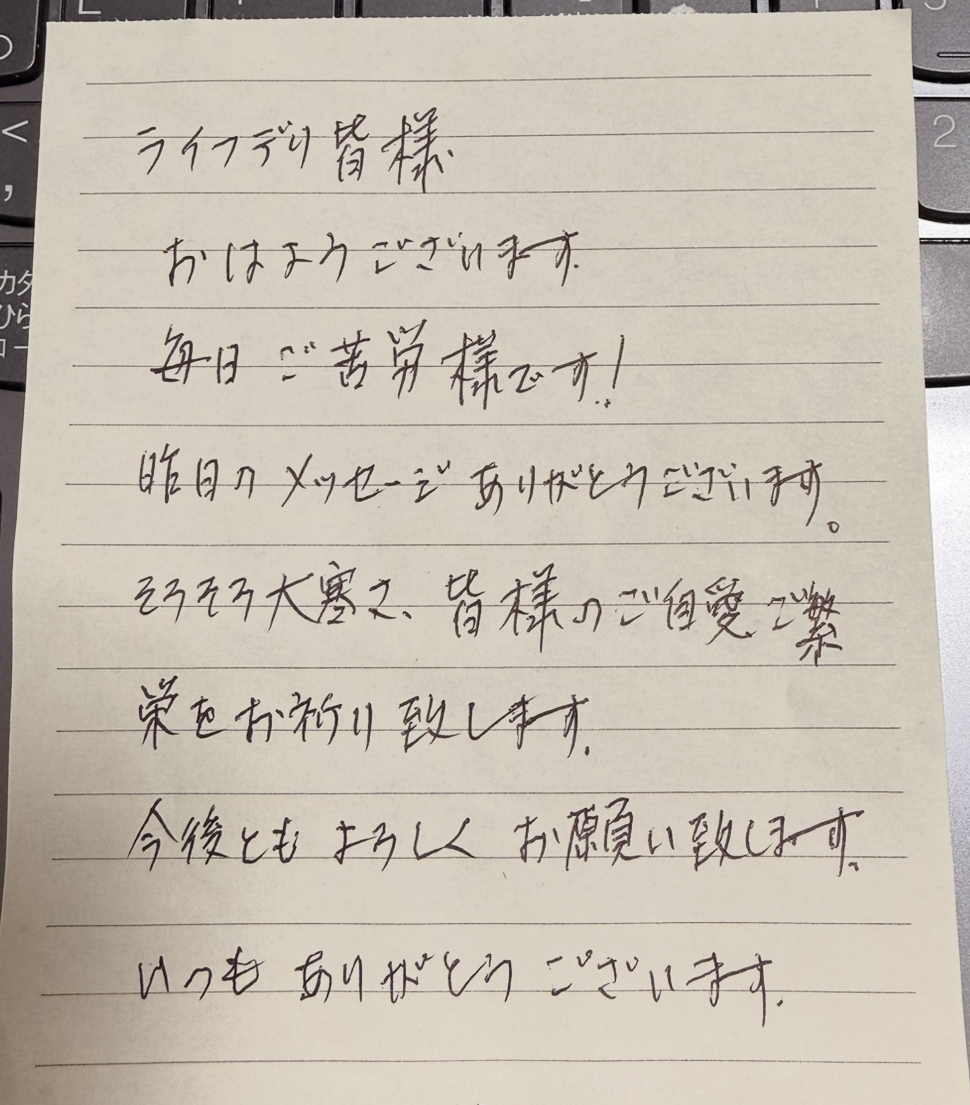 ライフデリ皆様
おはようございます.
毎日ご苦労様です!
昨日のメッセージありがとうございます。
そろそろ大寒で、皆様のご自愛、ご繁
栄をお祈り致します.
今後ともよろしくお願い致します.
いつもありがとうございます.
2
<
,
カタ
ひら
ロー